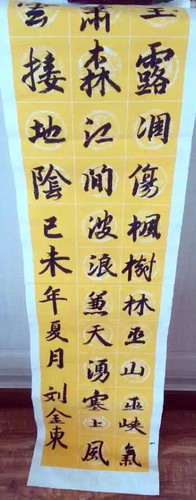 露凋傷楓樹林巫山巫峽氣
森江間波浪兼天湧塞上風
接地陰己未年夏月刘金東